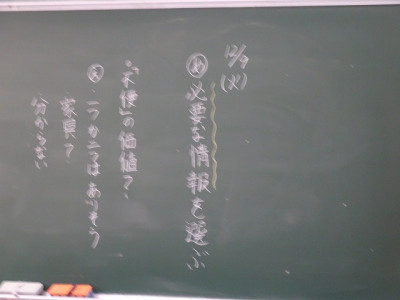 12/9(火)
め 必要な情報を選ぶ
「不便」の価値?
・一つか二つはありそう
家具?
分からない